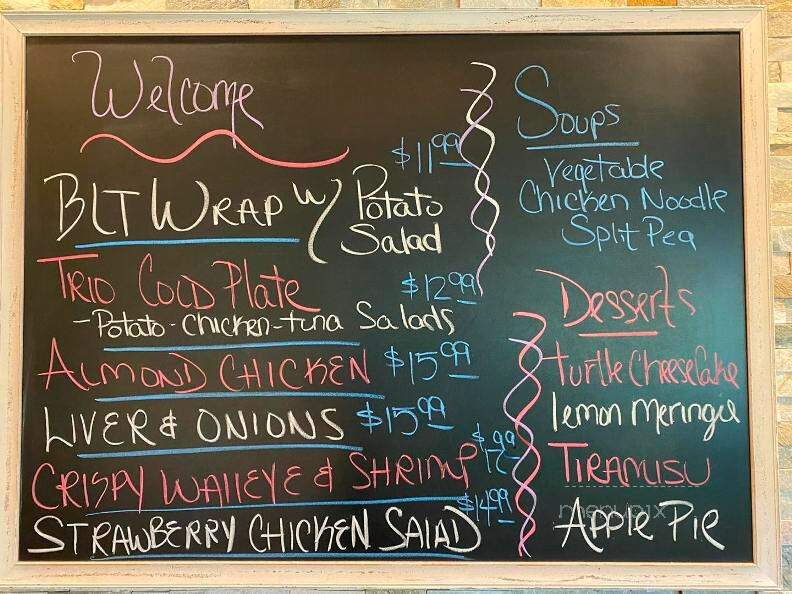 Welcome
$11.99
BLT WRAP w/ Potato
Salad
TRIO COLD Plate $12.99
-Potato-Chicken-tuna Salads
ALMOND CHICKEN $15.99
LIVER & ONIONS $15.99
CRISPY WALLEYE & SHRIMP $17.99
STRAWBERRY CHICKEN SALAD $14.99
Soups
Vegetable
Chicken Noodle
Split Pea
Desserts
turtle CheeseCake
lemon Meringue
TIRAMISU
Apple Pie
menupix